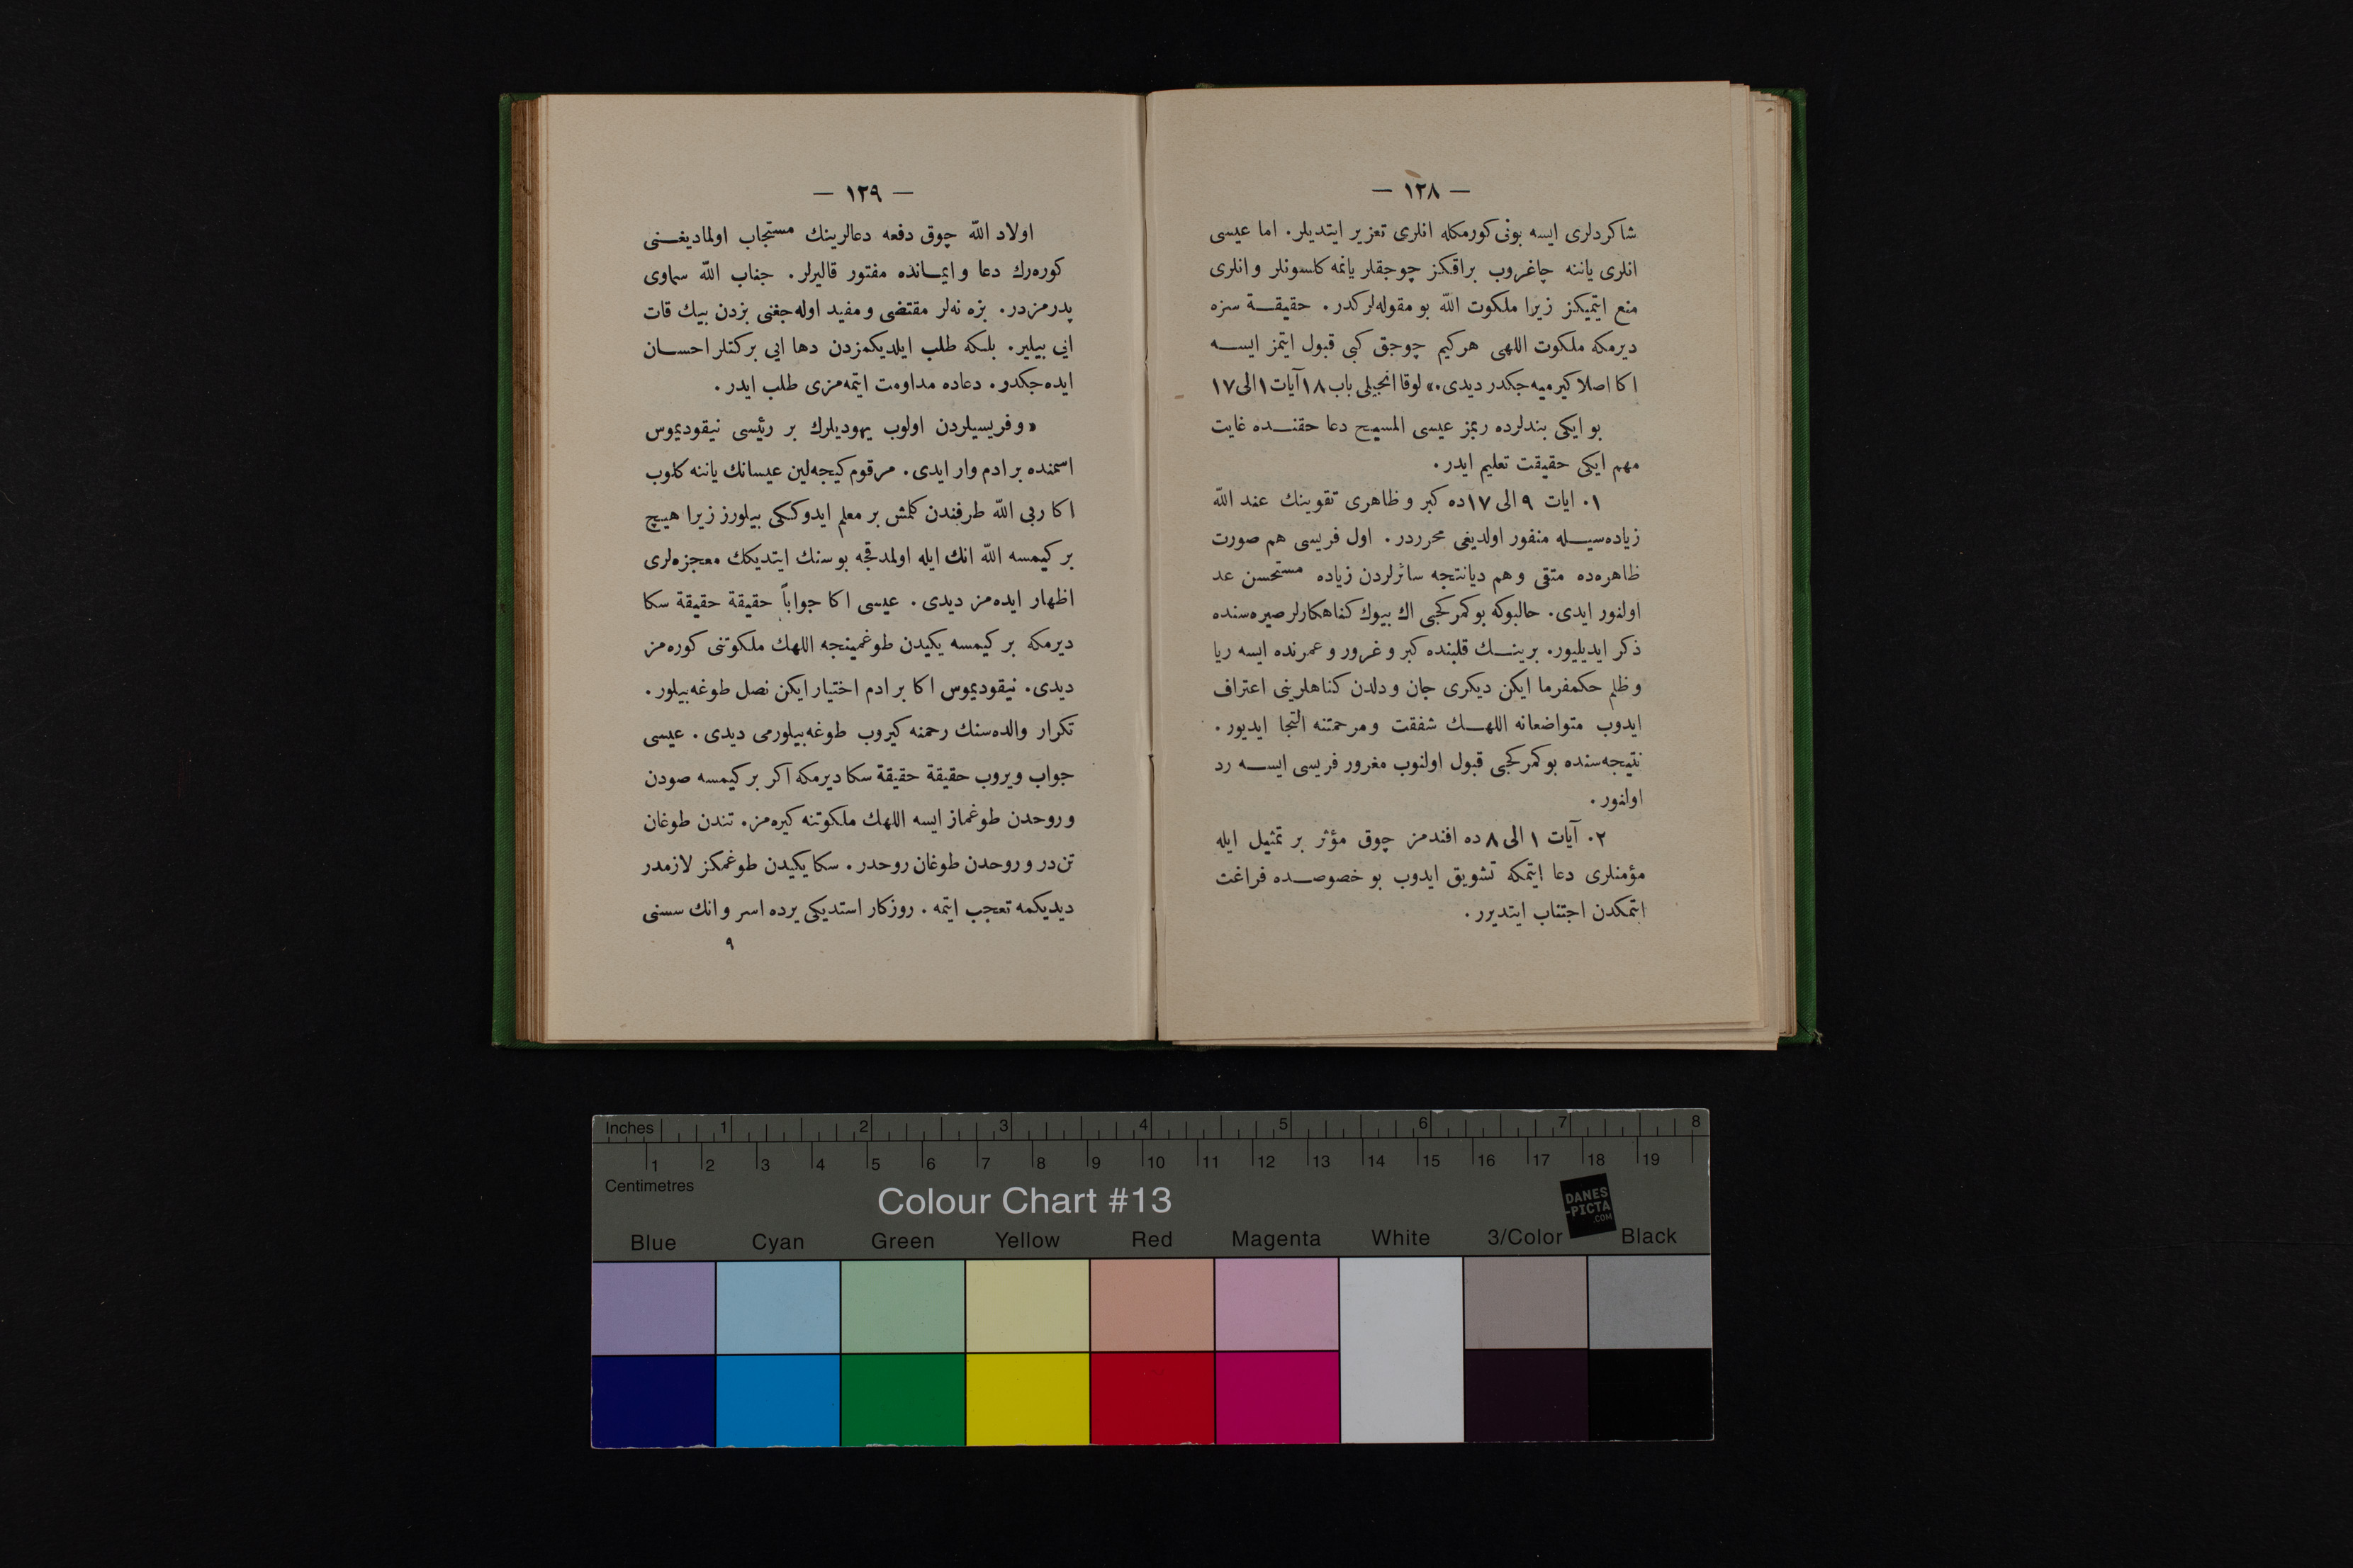 — ١٢٨ —
شاکردلری ایسه بونی کورمکله انلری تعزیر ایتدیلر. اما عیسی
انلری یاننه چاغروب براقکز چوجقلر یانمه کلسونلر و انلری
منع ایتمیکز زیرا ملکوت اللّه بو مقوله‌لرکدر. حقیقـــة سزه
دیرمکه ملکوت اللهی هرکیم چوجق کبی قبول ایتمز ایســـه
اکا اصلا کیرمیه‌جکدر دیدی.» لوقا انجیلی باب ١٨ آیات ١ الی ١٧
بو ایکی بندلرده ربمز عیسی المسیح دعا حقنـــده غایت
مهم ایکی حقیقت تعلیم ایدر.
١. ایات ٩ الی ١٧ ده کبر و ظاهری تقوینك عند اللّه
زیاده‌سیـــله منفور اولدیغی محرردر. اول فریسی هم صورت
ظاهره‌ده متقی و هم دیانتجه سائرلردن زیاده مستحسن عد
اولنور ایدی. حالبوکه بو کمرکجی اك بیوك کناهکارلر صیره‌سنده
ذکر ایدیلیور. برینـــك قلبنده کبر و غرور و عمرنده ایسه ریا
و ظلم حکمفرما ایکن دیکری جان و دلدن کناهلرینی اعتراف
ایدوب متواضعانه اللهـــك شفقت و مرحمتنه التجا ایدیور.
نتیجه‌سنده بو کمرکجی قبول اولنوب مغرور فریسی ایســـه رد
اولنور.
٢. آیات ١ الی ٨ ده افندمز چوق مؤثر بر تمثیل ایله
مؤمنلری دعا ایتمکه تشویق ایدوب بو خصوصـــده فراغت
ایتمکدن اجتناب ایتدیرر.
— ١٢٩ —
اولاد اللّه چوق دفعه دعالرینك مستجاب اولمادیغـــنی
کوره‌رك دعا و ایمـــانده مفتور قالیرلر. جناب اللّه سماوی
پدرمزدر. بزه نه‌لر مقتضی و مفید اوله‌جغنی بزدن بیك قات
ایی بیلیر. بلکه طلب ایلدیکمزدن دها ایی برکتلر احســـان
ایده‌جکدر. دعاده مداومت ایتمه‌مزی طلب ایدر.
« و فریسیلردن اولوب یهودیلرك بر رئیسی نیقودیموس
اسمنده بر ادم وار ایدی. مرقوم کیجه‌لین عیسانك یاننه کلوب
اکا ربی اللّه طرفندن کلمش بر معلم ایدوککی بیلورز زیرا هیچ
بر کیمسه اللّه انك ایله اولمدقجه بو سنك ایتدیکك معجزه‌لری
اظهار ایده‌مز دیدی. عیسی اکا جواباً حقیقة حقیقة سکا
دیرمکه بر کیمسه یکیدن طوغمینجه اللهك ملکوتنی کوره‌مز
دیدی. نیقودیموس اکا بر ادم اختیار ایکن نصل طوغه‌بیلور.
تکرار والده‌سنك رحمنه کیروب طوغه‌بیلورمی دیدی. عیسی
جواب ویروب حقیقة حقیقة سکا دیرمکه اکر بر کیمسه صودن
و روحدن طوغماز ایسه اللهك ملکوتنه کیره‌مز. تندن طوغان
تن‌در و روحدن طوغان روحدر. سکا یکیدن طوغمکز لازمدر
دیدیکمه تعجب ایتمه. روزکار استدیکی یرده اسر و انك سسنی
٩
Inches 1 2 3 4 5 6 7 8
1 2 3 4 5 6 7 8 9 10 11 12 13 14 15 16 17 18 19
Centimetres
Colour Chart #13
DANES
-PICTA
.COM
Blue Cyan Green Yellow Red Magenta White 3/Color Black